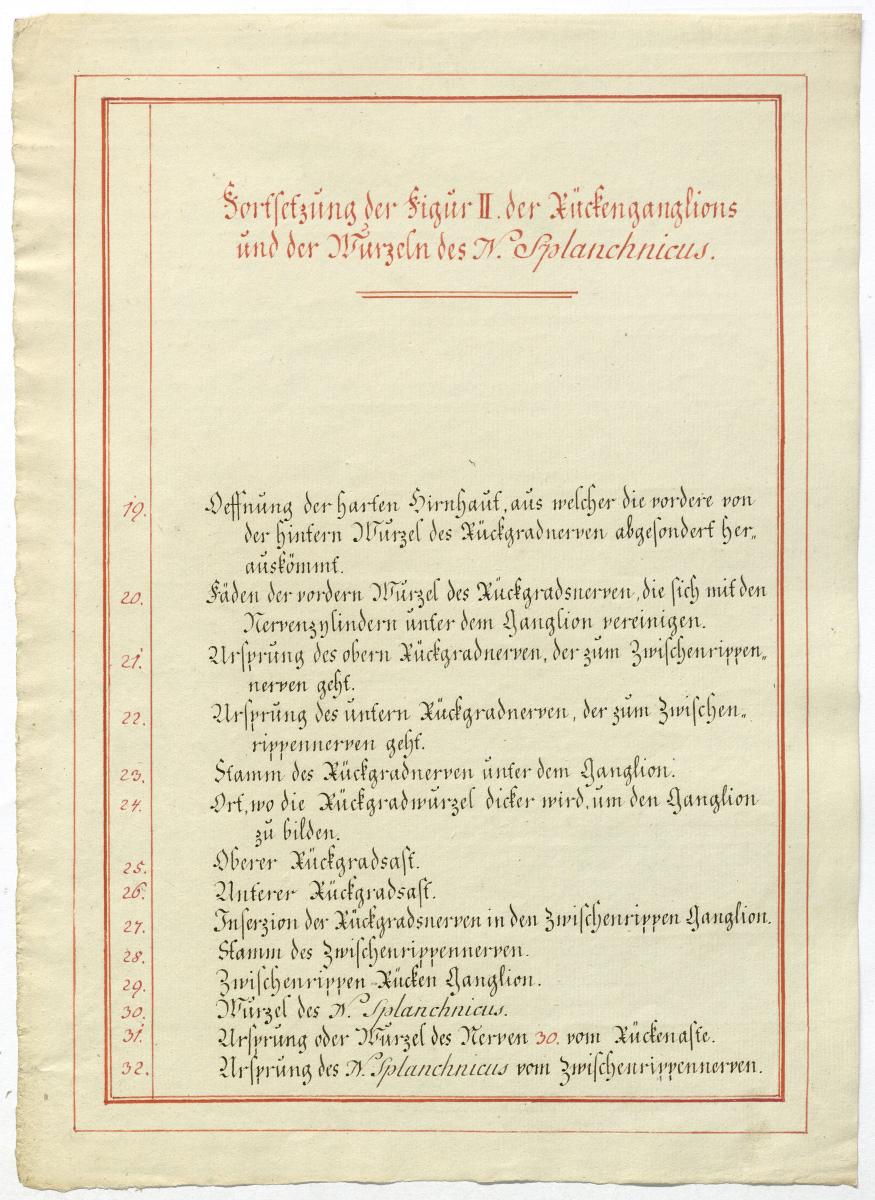 Fortsetzung der Figur II. der Rückenganglions
und der Wurzeln des N. Splanchnicus.
19. Oeffnung der harten Hirnhaut, aus welcher die vordere von
der hintern Wurzel des Rückgradnerven abgesondert her„
auskömmt.
20. Fäden der vordern Wurzel des Rückgradsnerven, die sich mit den
Nervenzylindern unter dem Ganglion vereinigen.
21. Ursprung des obern Rückgradnerven, der zum Zwischenrippen„
nerven geht.
22. Ursprung des untern Rückgradnerven, der zum Zwischen„
rippennerven geht.
23. Stamm des Rückgradnerven unter dem Ganglion.
24. Ort, wo die Rückgradwurzel dicker wird, um den Ganglion
zu bilden.
25. Oberer Rückgradsast.
26. Unterer Rückgradsast.
27. Inserzion der Rückgradsnerven in den Zwischenrippen Ganglion.
28. Stamm des Zwischenrippennerven.
29. Zwischenrippen-Rücken Ganglion.
30. Wurzel des N. Splanchnicus.
31. Ursprung oder Wurzel des Nerven 30. vom Rückenaste.
32. Ursprung des N. Splanchnicus vom Zwischenrippennerven.